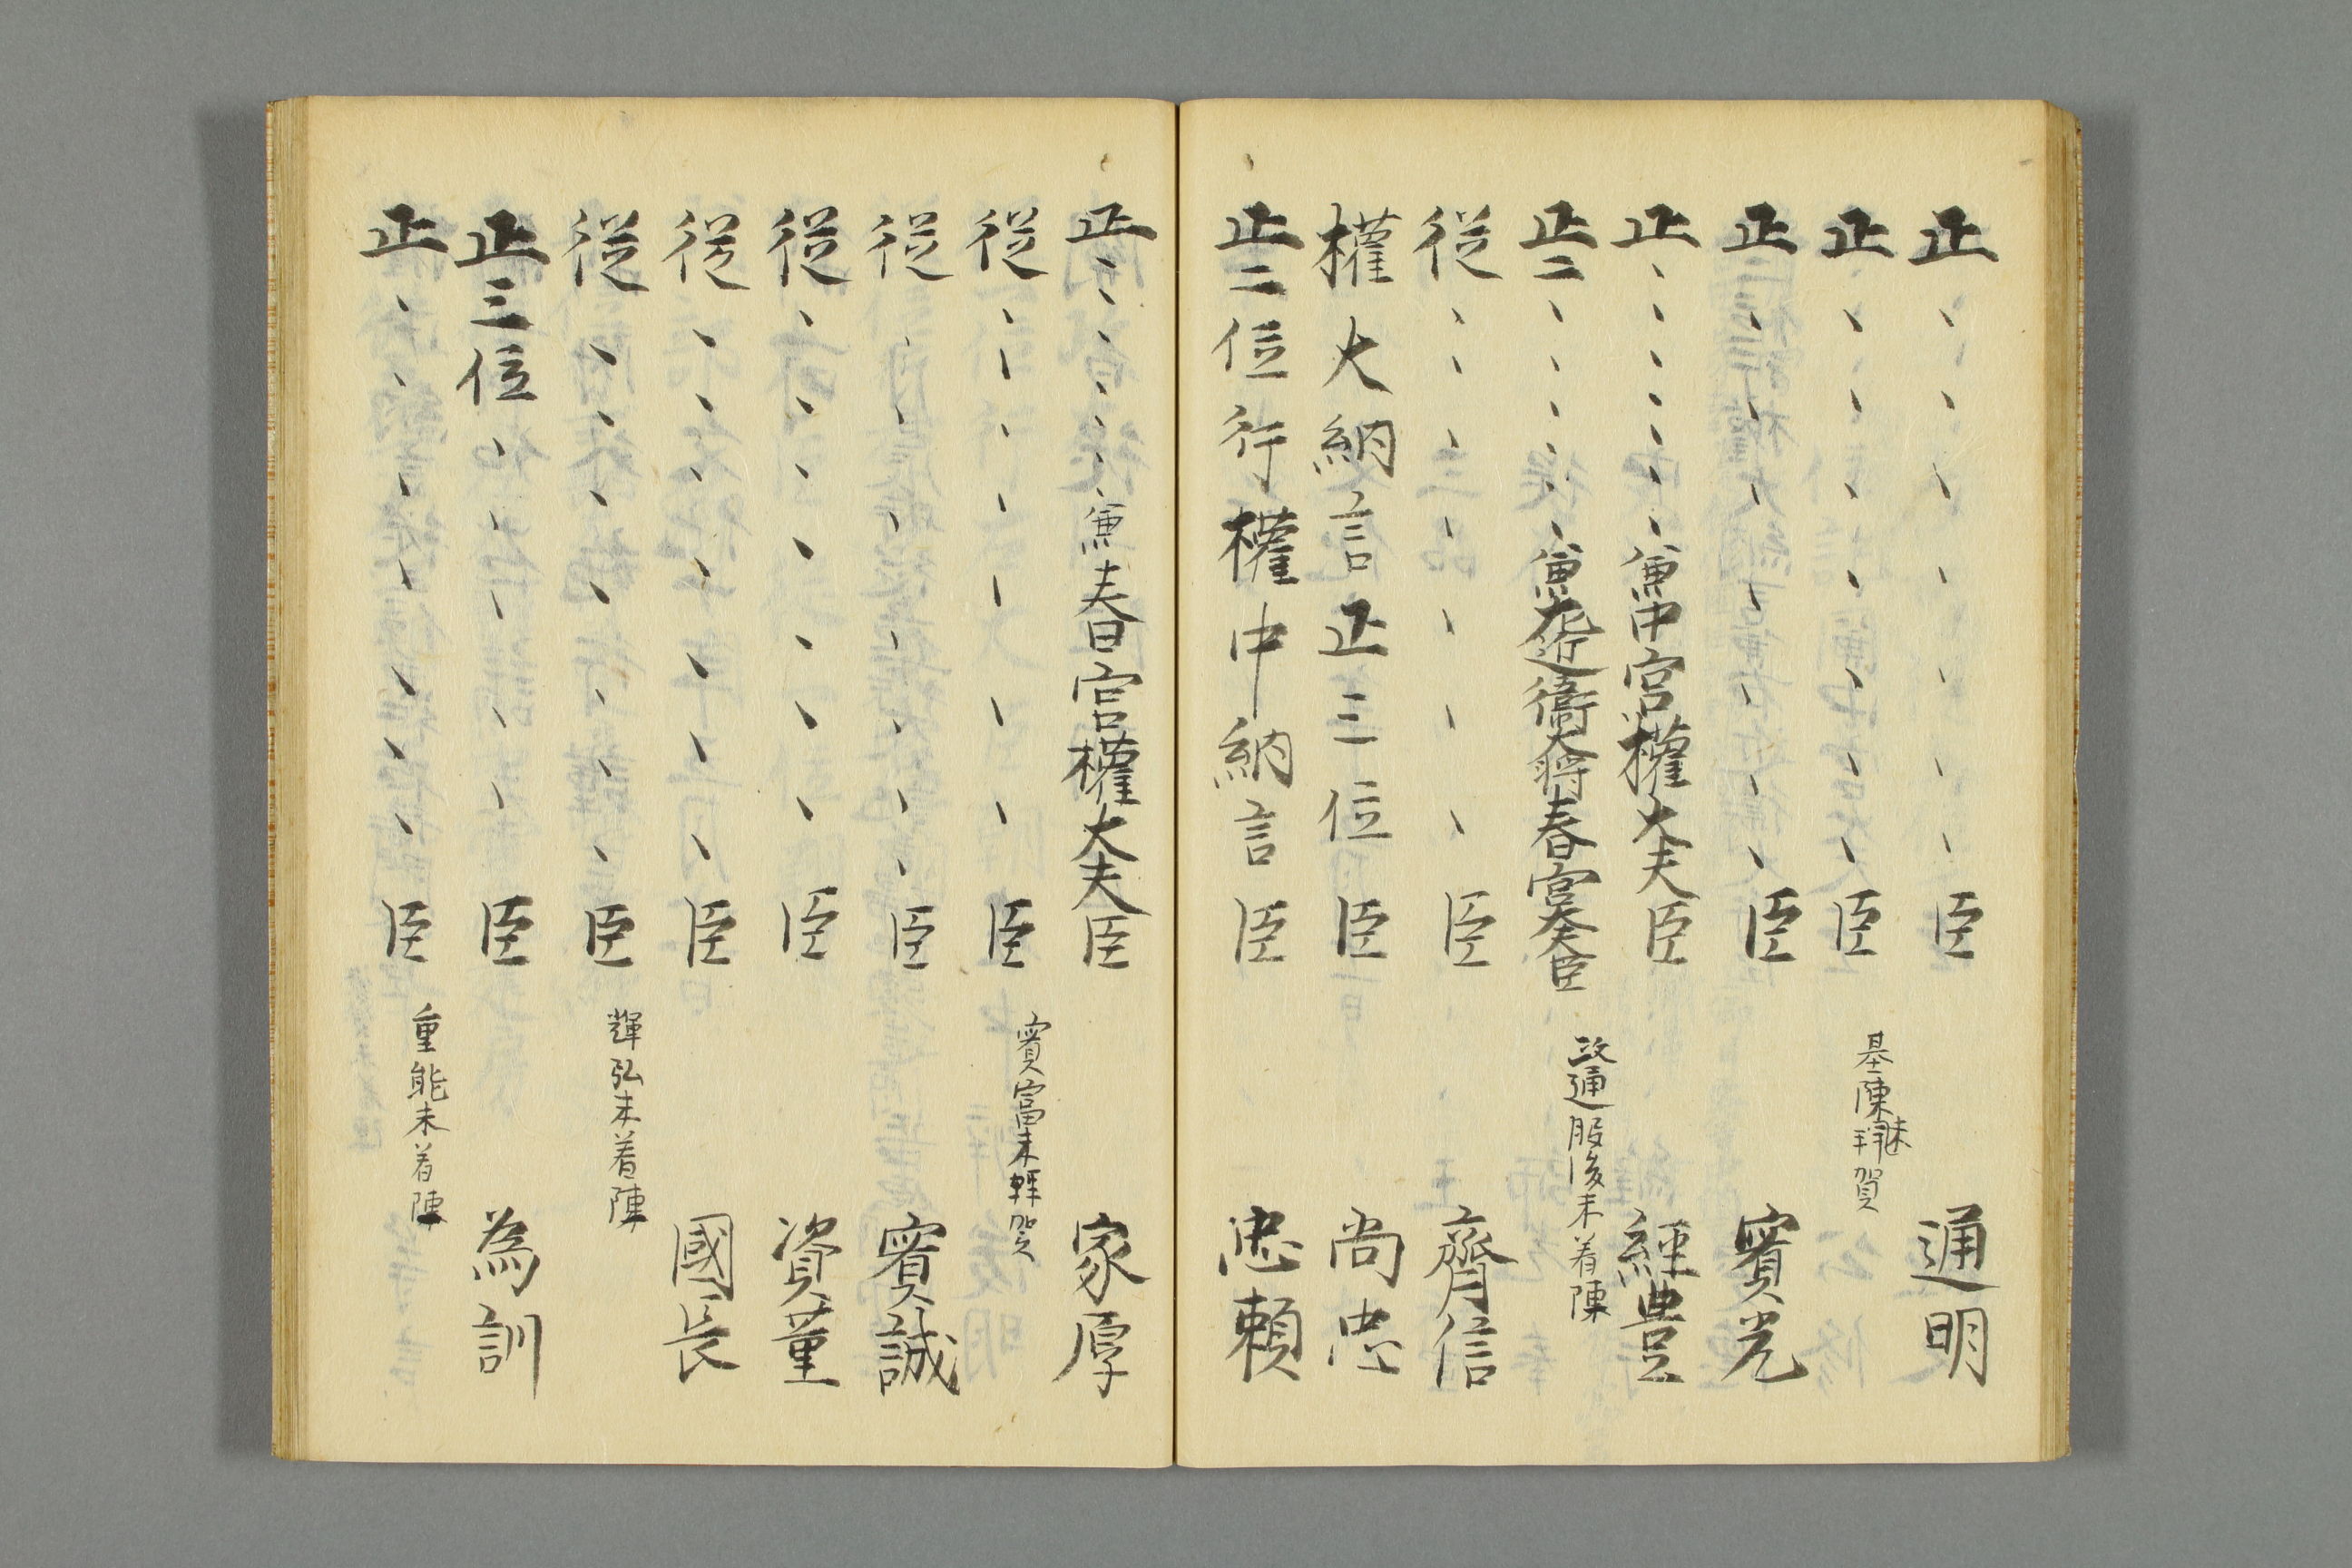 正、、、、、、、臣 通明
正、、、、、、、臣 基陳未拝賀
正、、、、、、、臣 實光
正、、、、、、兼中宮權大夫臣 經豊
正二、、、、、兼左近衛大将春宮大夫臣 政通服後未着陣
從、、、、、、、臣 齊信
權大納言正三位臣 尚忠
正二位行權中納言臣 忠頼
正、、、、、、兼春宮權大夫臣 家厚
從、、、、、、、臣 實富未拜賀
從、、、、、、、臣 實誠
從、、、、、、、臣 資董
從、、、、、、、臣 國長
從、、、、、、、臣 輝弘未着陣
正三位、、、、、臣 為訓
正、、、、、、、臣 重能未着陣